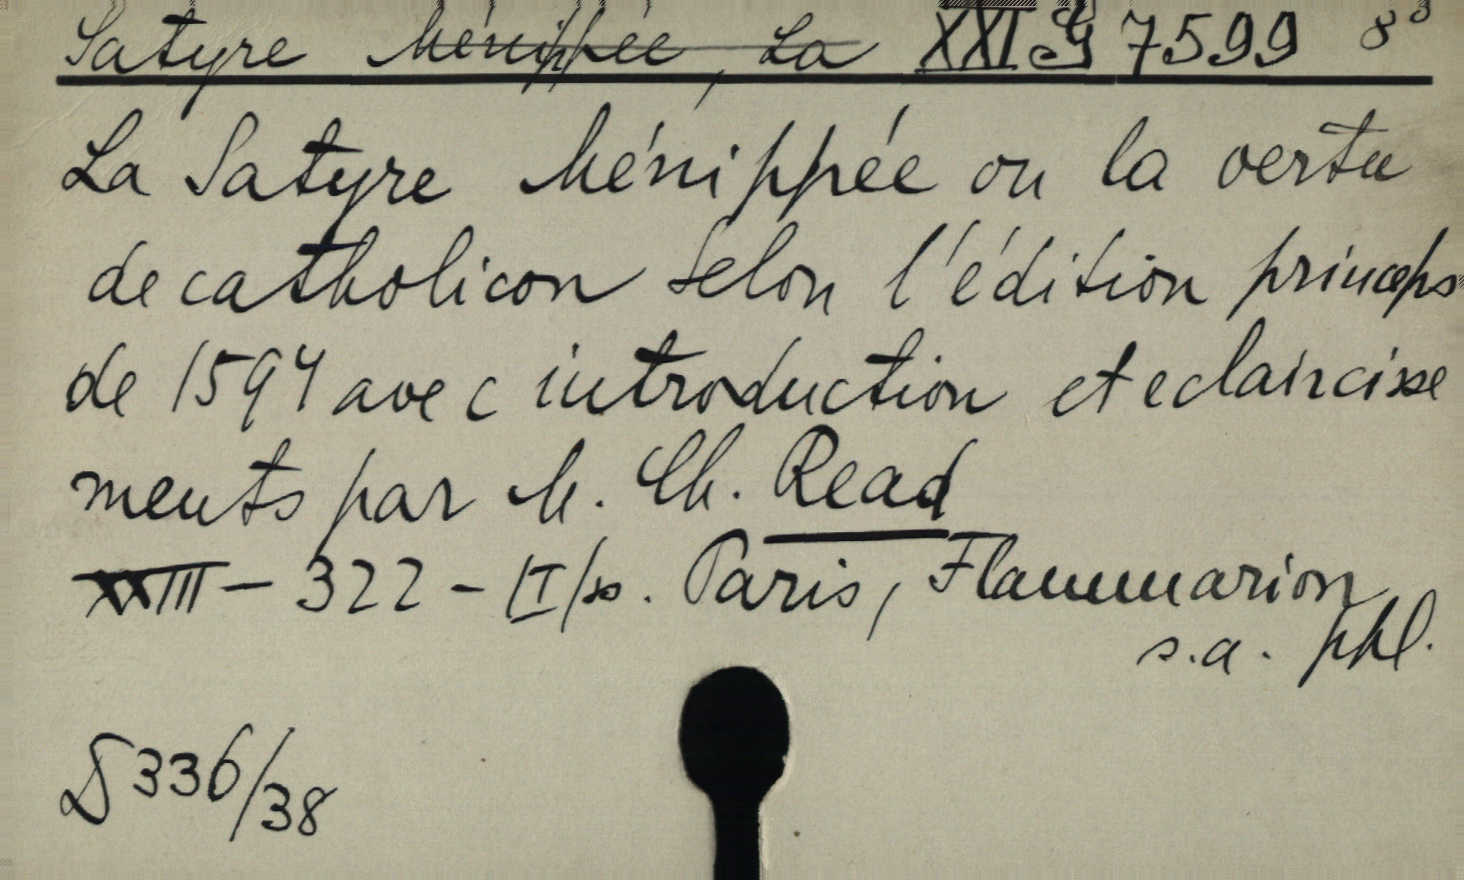 Satyre Ménippée, La XXI G 7599 8°
La Satyre Ménippée ou la vertu
de catholicon selon l'édition princeps
de 1594 avec introduction et eclaircisse
ments par M. Ch. Read
XXIII - 322 - [I] s. Paris, Flammarion
s.a. phl.
D 336/38